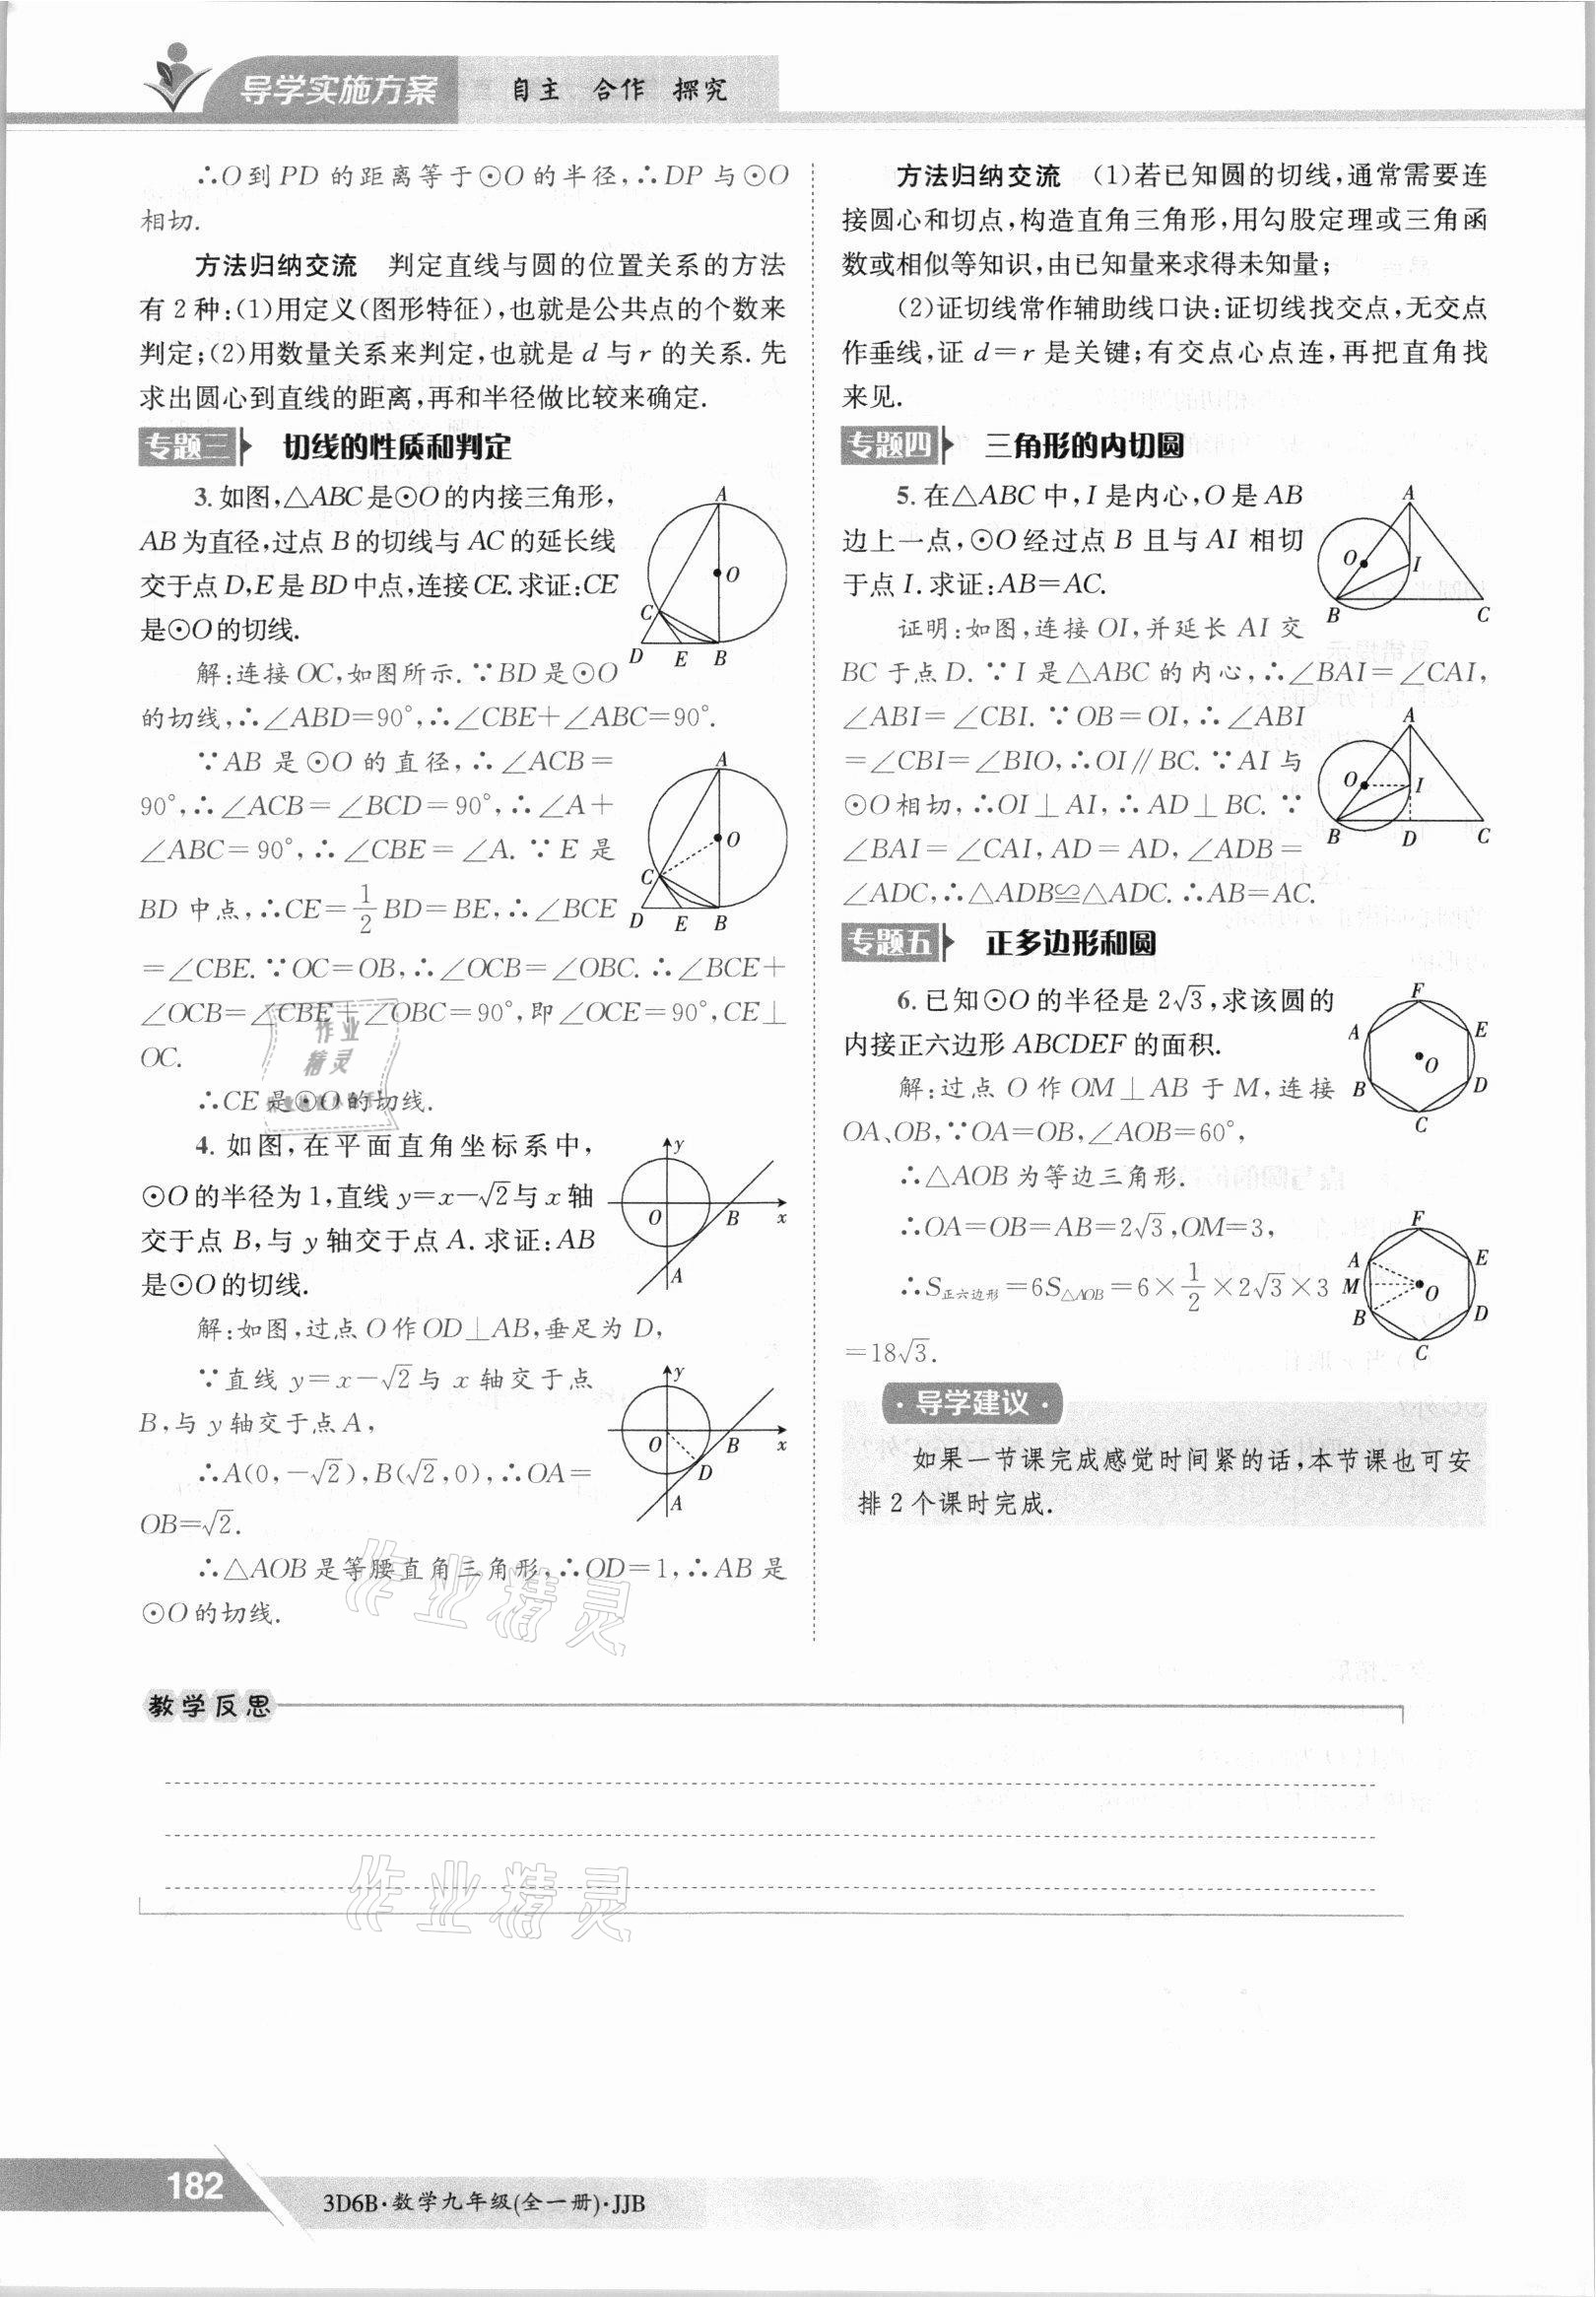 导学实施方案 自主 合作 探究
∴O到PD的距离等于⊙O的半径,∴DP与⊙O
相切.
方法归纳交流 判定直线与圆的位置关系的方法
有2种:(1)用定义(图形特征),也就是公共点的个数来
判定;(2)用数量关系来判定,也就是d与r的关系.先
求出圆心到直线的距离,再和半径做比较来确定.
专题三 切线的性质和判定
3.如图,△ABC是⊙O的内接三角形,
AB为直径,过点B的切线与AC的延长线
交于点D,E是BD中点,连接CE.求证:CE
是⊙O的切线.
A
O
C
D E B
解:连接OC,如图所示.∵BD是⊙O
的切线,∴∠ABD=90°,∴∠CBE+∠ABC=90°.
∵AB是⊙O的直径,∴∠ACB=
90°,∴∠ACB=∠BCD=90°,∴∠A+
∠ABC=90°,∴∠CBE=∠A.∵E是
BD中点,∴CE=1/2BD=BE,∴∠BCE
=∠CBE.∵OC=OB,∴∠OCB=∠OBC.∴∠BCE+
∠OCB=∠CBE+∠OBC=90°,即∠OCE=90°,CE⊥
OC.
∴CE是⊙O的切线.
A
O
C
D E B
4.如图,在平面直角坐标系中,
⊙O的半径为1,直线y=x-√2与x轴
交于点B,与y轴交于点A.求证:AB
是⊙O的切线.
y
O B x
A
解:如图,过点O作OD⊥AB,垂足为D,
∵直线y=x-√2与x轴交于点
B,与y轴交于点A,
∴A(0,-√2),B(√2,0),∴OA=
OB=√2.
∴△AOB是等腰直角三角形,∴OD=1,∴AB是
⊙O的切线.
y
O B x
D
A
方法归纳交流 (1)若已知圆的切线,通常需要连
接圆心和切点,构造直角三角形,用勾股定理或三角函
数或相似等知识,由已知量来求得未知量;
(2)证切线常作辅助线口诀:证切线找交点,无交点
作垂线,证d=r是关键;有交点心点连,再把直角找
来见.
专题四 三角形的内切圆
5.在△ABC中,I是内心,O是AB
边上一点,⊙O经过点B且与AI相切
于点I.求证:AB=AC.
A
O I
B C
证明:如图,连接OI,并延长AI交
BC于点D.∵I是△ABC的内心,∴∠BAI=∠CAI,
∠ABI=∠CBI.∵OB=OI,∴∠ABI
=∠CBI=∠BIO,∴OI∥BC.∵AI与
⊙O相切,∴OI⊥AI,∴AD⊥BC.∵
∠BAI=∠CAI,AD=AD,∠ADB=
∠ADC,∴△ADB≌△ADC.∴AB=AC.
A
O I
B D C
专题五 正多边形和圆
6.已知⊙O的半径是2√3,求该圆的
内接正六边形ABCDEF的面积.
F
A E
O
B D
C
解:过点O作OM⊥AB于M,连接
OA、OB,∵OA=OB,∠AOB=60°,
∴△AOB为等边三角形.
∴OA=OB=AB=2√3,OM=3,
∴S正六边形=6S△AOB=6×1/2×2√3×3
=18√3.
F
A E
M O
B D
C
·导学建议·
如果一节课完成感觉时间紧的话,本节课也可安
排2个课时完成.
作业
精灵
作业精灵
教学反思
作业精灵
182
3D6B·数学九年级(全一册)·JJB